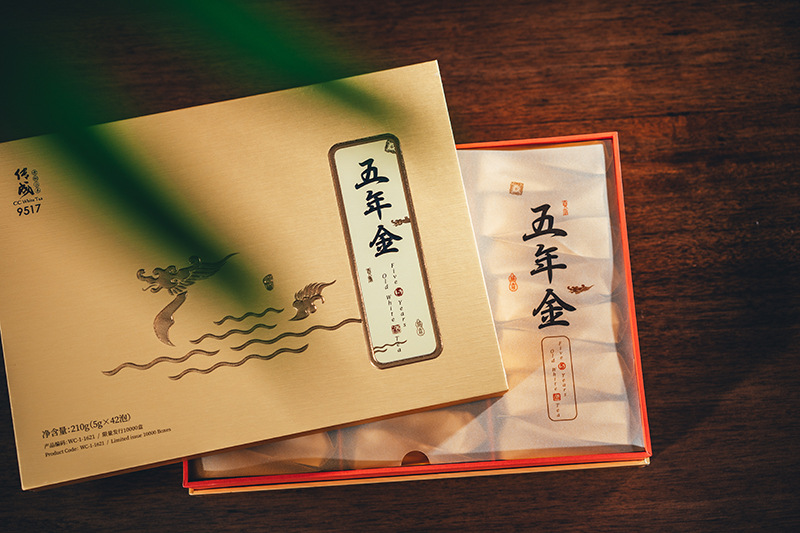 传成
CC White Tea
9517
五年金
Five Years
Old White Tea
净含量: 210g (5g×42泡)
产品编码: WC-1-1621 / 限量发行10000盒
Product Code: WC-1-1621 / Limited issue 10000 Boxes
五年金
Five Years
Old White Tea